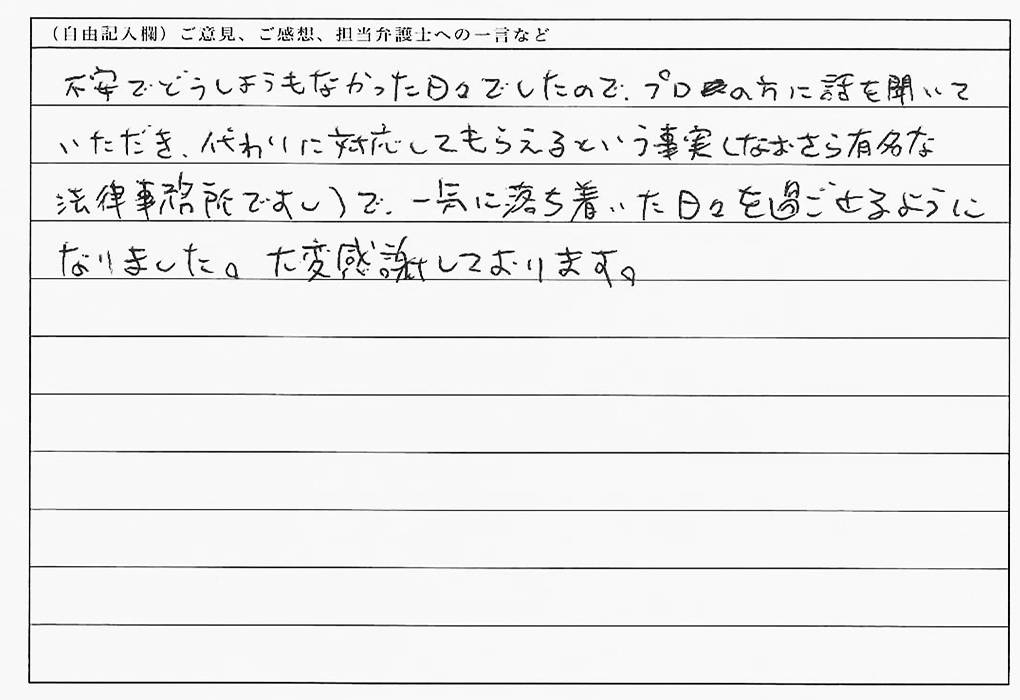 (自由記入欄)ご意見、ご感想、担当弁護士への一言など
不安でどうしようもなかった日々でしたので、プロの方に話を聞いて
いただき、代わりに対応してもらえるという事実(なおさら有名な
法律事務所ですし)で、一気に落ち着いた日々を過ごせるように
なりました。大変感謝しております。